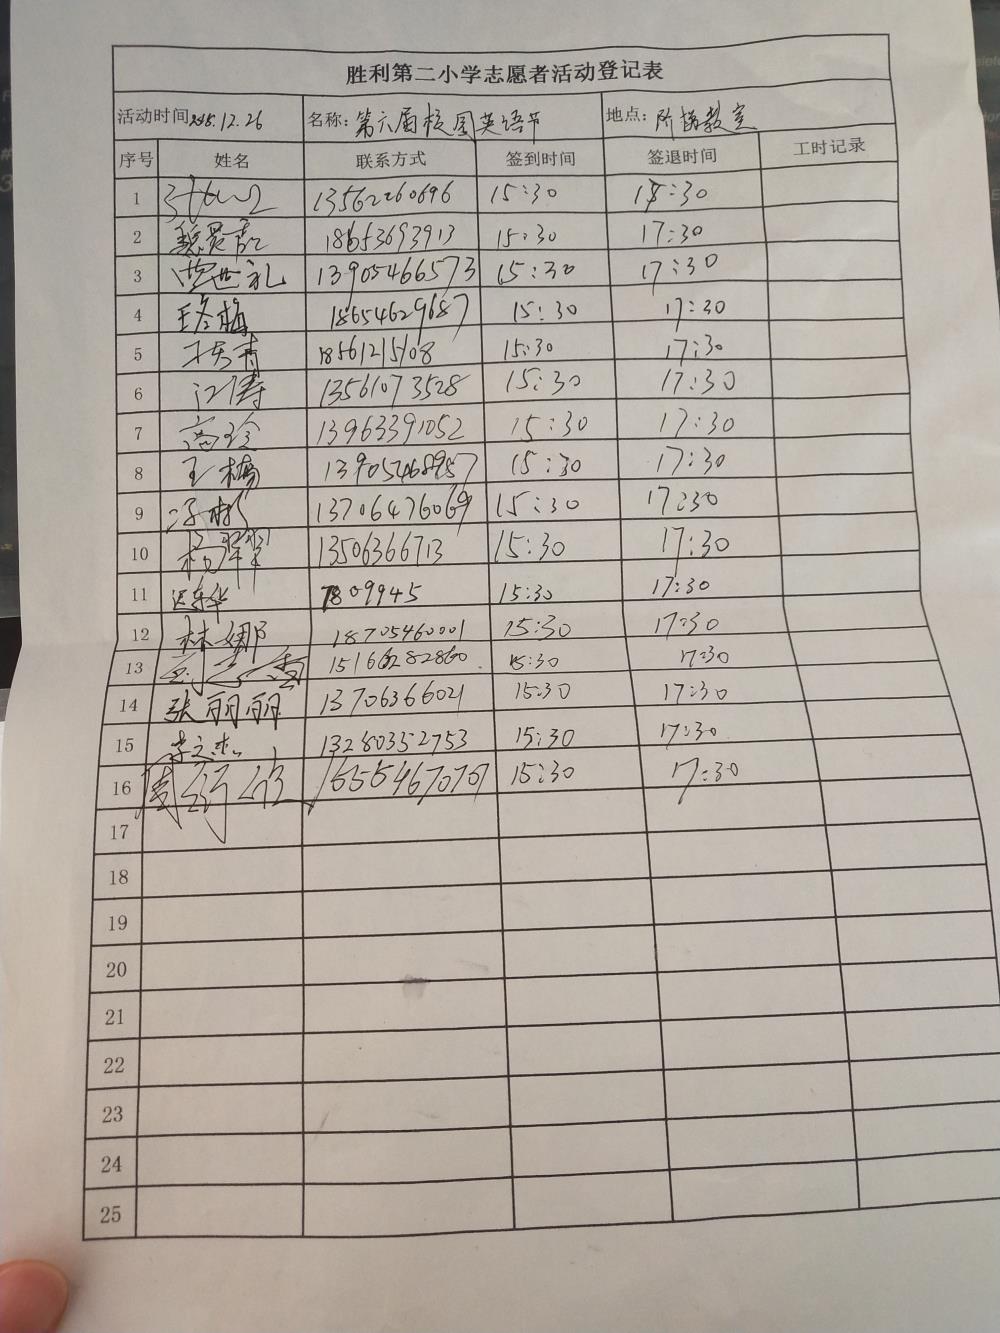 胜利第二小学志愿者活动登记表
活动时间 12.26 名称：第六届校园英语节 地点：阶梯教室
序号 姓名 联系方式 签到时间 签退时间 工时记录
1 13562260696 15:30 15:30
2 18653693913 15:30 17:30
3 13905466573 15:30 17:30
4 王冬梅 18654629687 15:30 17:30
5 18561215108 15:30 17:30
6 江涛 13561073528 15:30 17:30
7 高玲 13963391052 15:30 17:30
8 王梅 13905468957 15:30 17:30
9 13706476069 15:30 17:30
10 杨翠翠 13506366713 15:30 17:30
11 7809945 15:30 17:30
12 林娜 18705460001 15:30 17:30
13 15166282860 15:30 17:30
14 张丽丽 13706366021 15:30 17:30
15 李文杰 13280352753 15:30 17:30
16 15:30 17:30
17
18
19
20
21
22
23
24
25